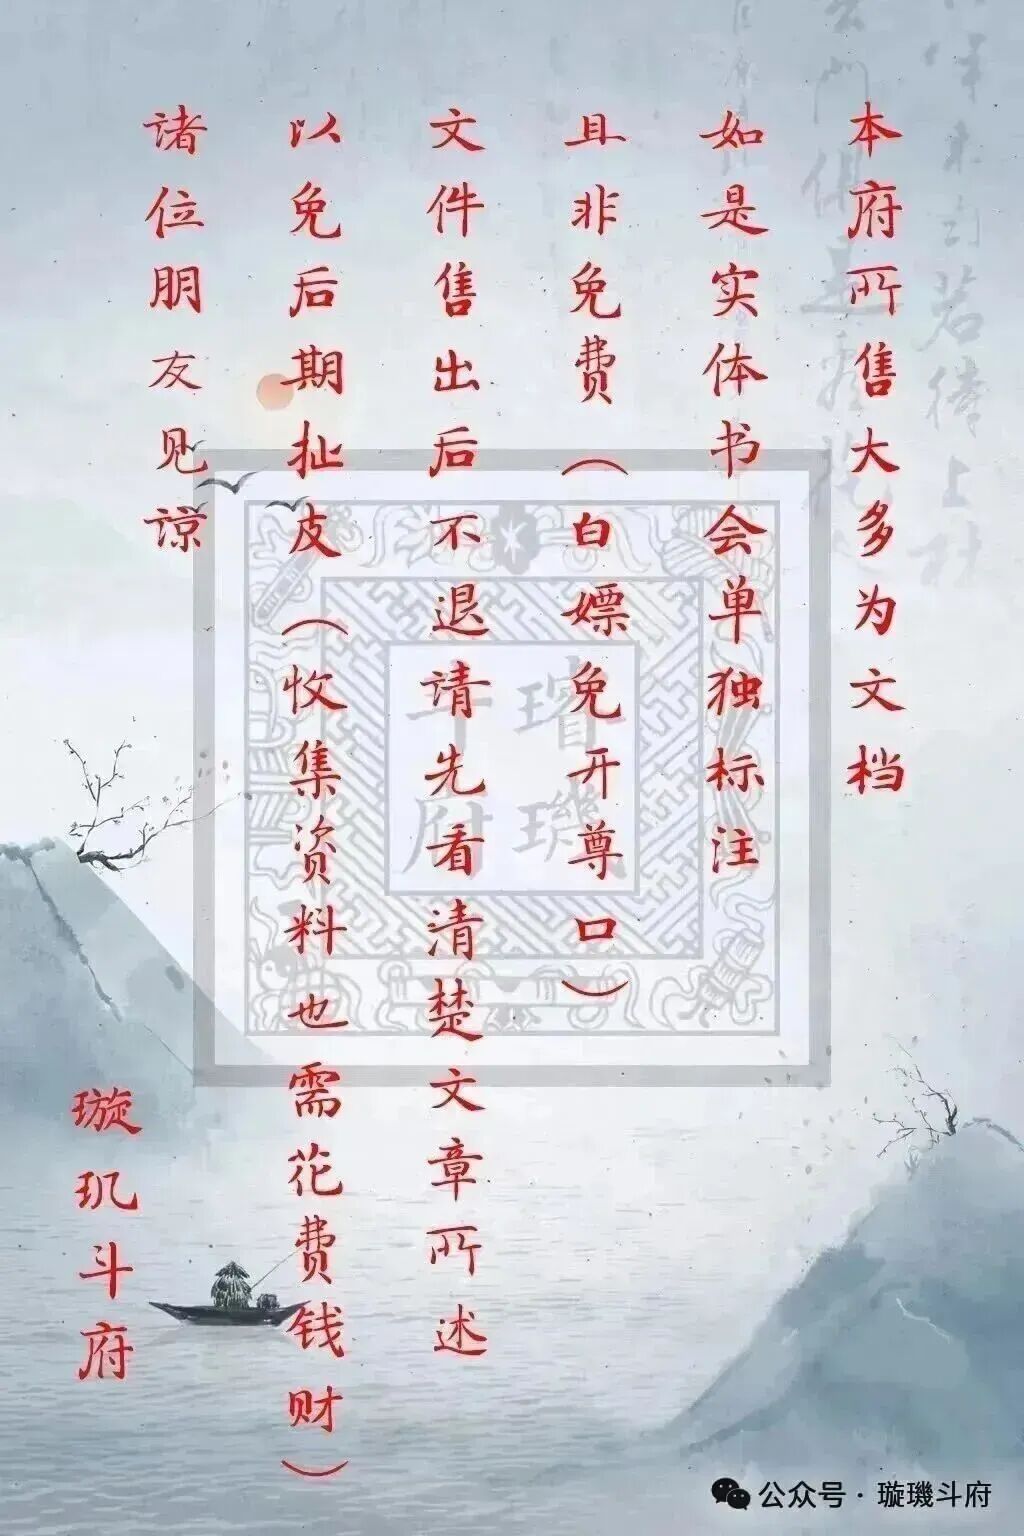 本府所售大多为文档
如是实体书会单独标注
且非免费（白嫖免开尊口）
文件售出后不退请先看清楚文章所述
以免后期扯皮（收集资料也需花费钱财）
诸位朋友见谅
璇玑斗府
璿璣
斗府
公众号·璇璣斗府